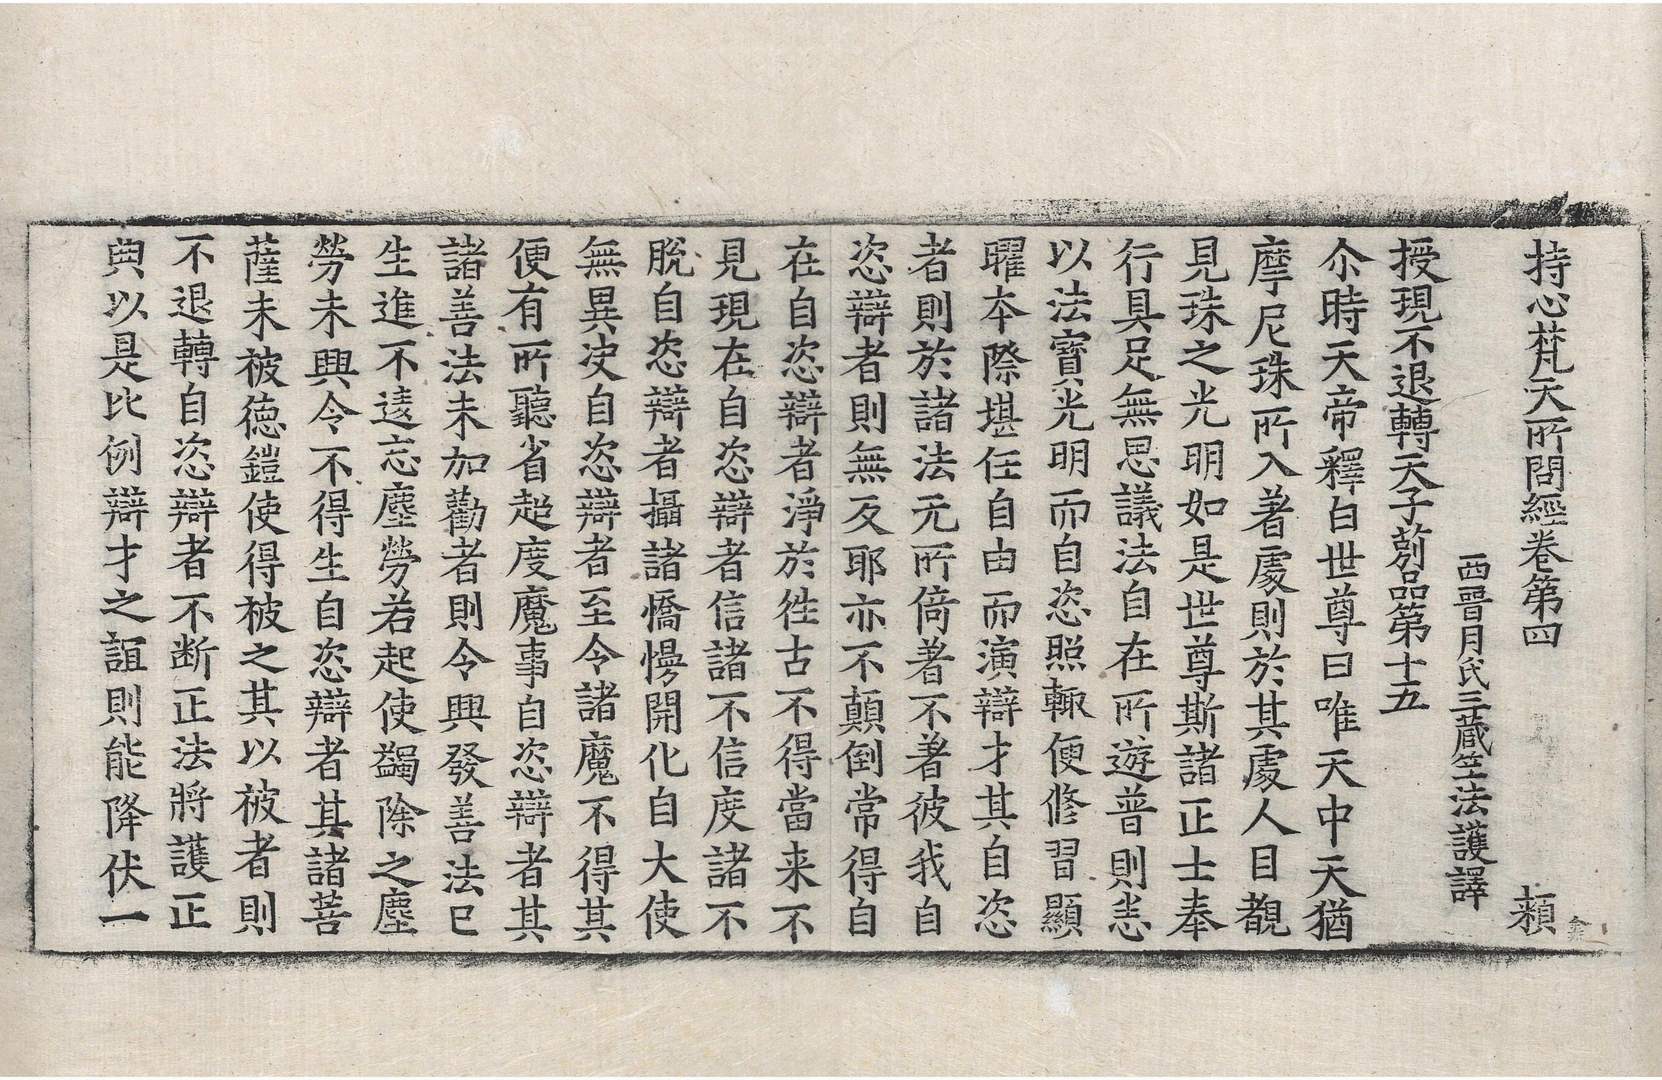 持心梵天所問經卷第四 賴
西晉月氏三藏竺法護譯
授現不退轉天子莂品第十五
尒時天帝釋白世尊曰唯天中天猶
摩尼珠所入著處則於其處人目覩
見珠之光明如是世尊斯諸正士奉
行具足無思議法自在所遊普則恙
以法寶光明而自恣照輙便修習顯
曜本際堪任自由而演辯才其自恣
者則於諸法无所倚著不著彼我自
恣辯者則無反耶亦不顛倒常得自
在自恣辯者淨於徃古不得當来不
見現在自恣辯者信諸不信度諸不
脫自恣辯者攝諸憍慢開化自大使
無異决自恣辯者至令諸魔不得其
便有所聽省超度魔事自恣辯者其
諸善法未加勸者則令興發善法已
生進不逺忘塵勞若起使蠲除之塵
勞未興令不得生自恣辯者其諸菩
薩未被德鎧使得被之其以被者則
不退轉自恣辯者不断正法將護正
典以是比例辯才之誼則能降伏一